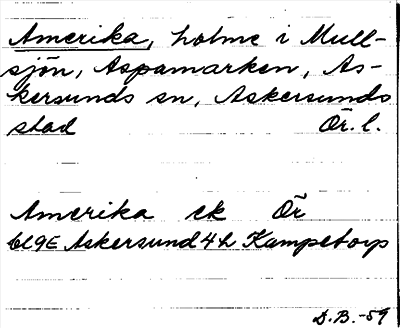 Amerika, holme i Mull-
sjön, Aspamarken, As-
kersunds sn, Askersunds
stad Ör. l.
Amerika ek Ör
Askersund 4h Kampetorp
D.B.-59